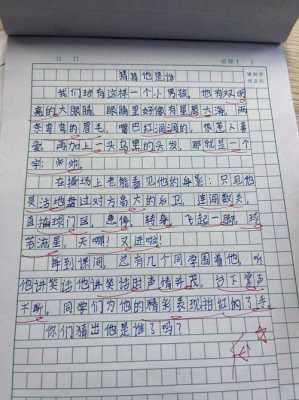 猜猜他是谁
我们班有这样一个小男孩，他有双明
亮的大眼睛，眼睛里好像有星辰大海，两
条弯弯的眉毛，嘴巴红润润的，很惹人喜
爱，再加上一头乌黑的头发，那就是一个
在操场上老能看见他的身影：只见他
灵活地盘过对方高大的后卫，连闯数关，
直捣球门区，急停，转身，飞起一脚，球
应声
到课间，总有几个同学围着他，听
他讲笑话他讲笑话出声情并茂，台下掌声
不断，同学们为他的精彩表现拍红的了手
你们猜出他是谁了吗？